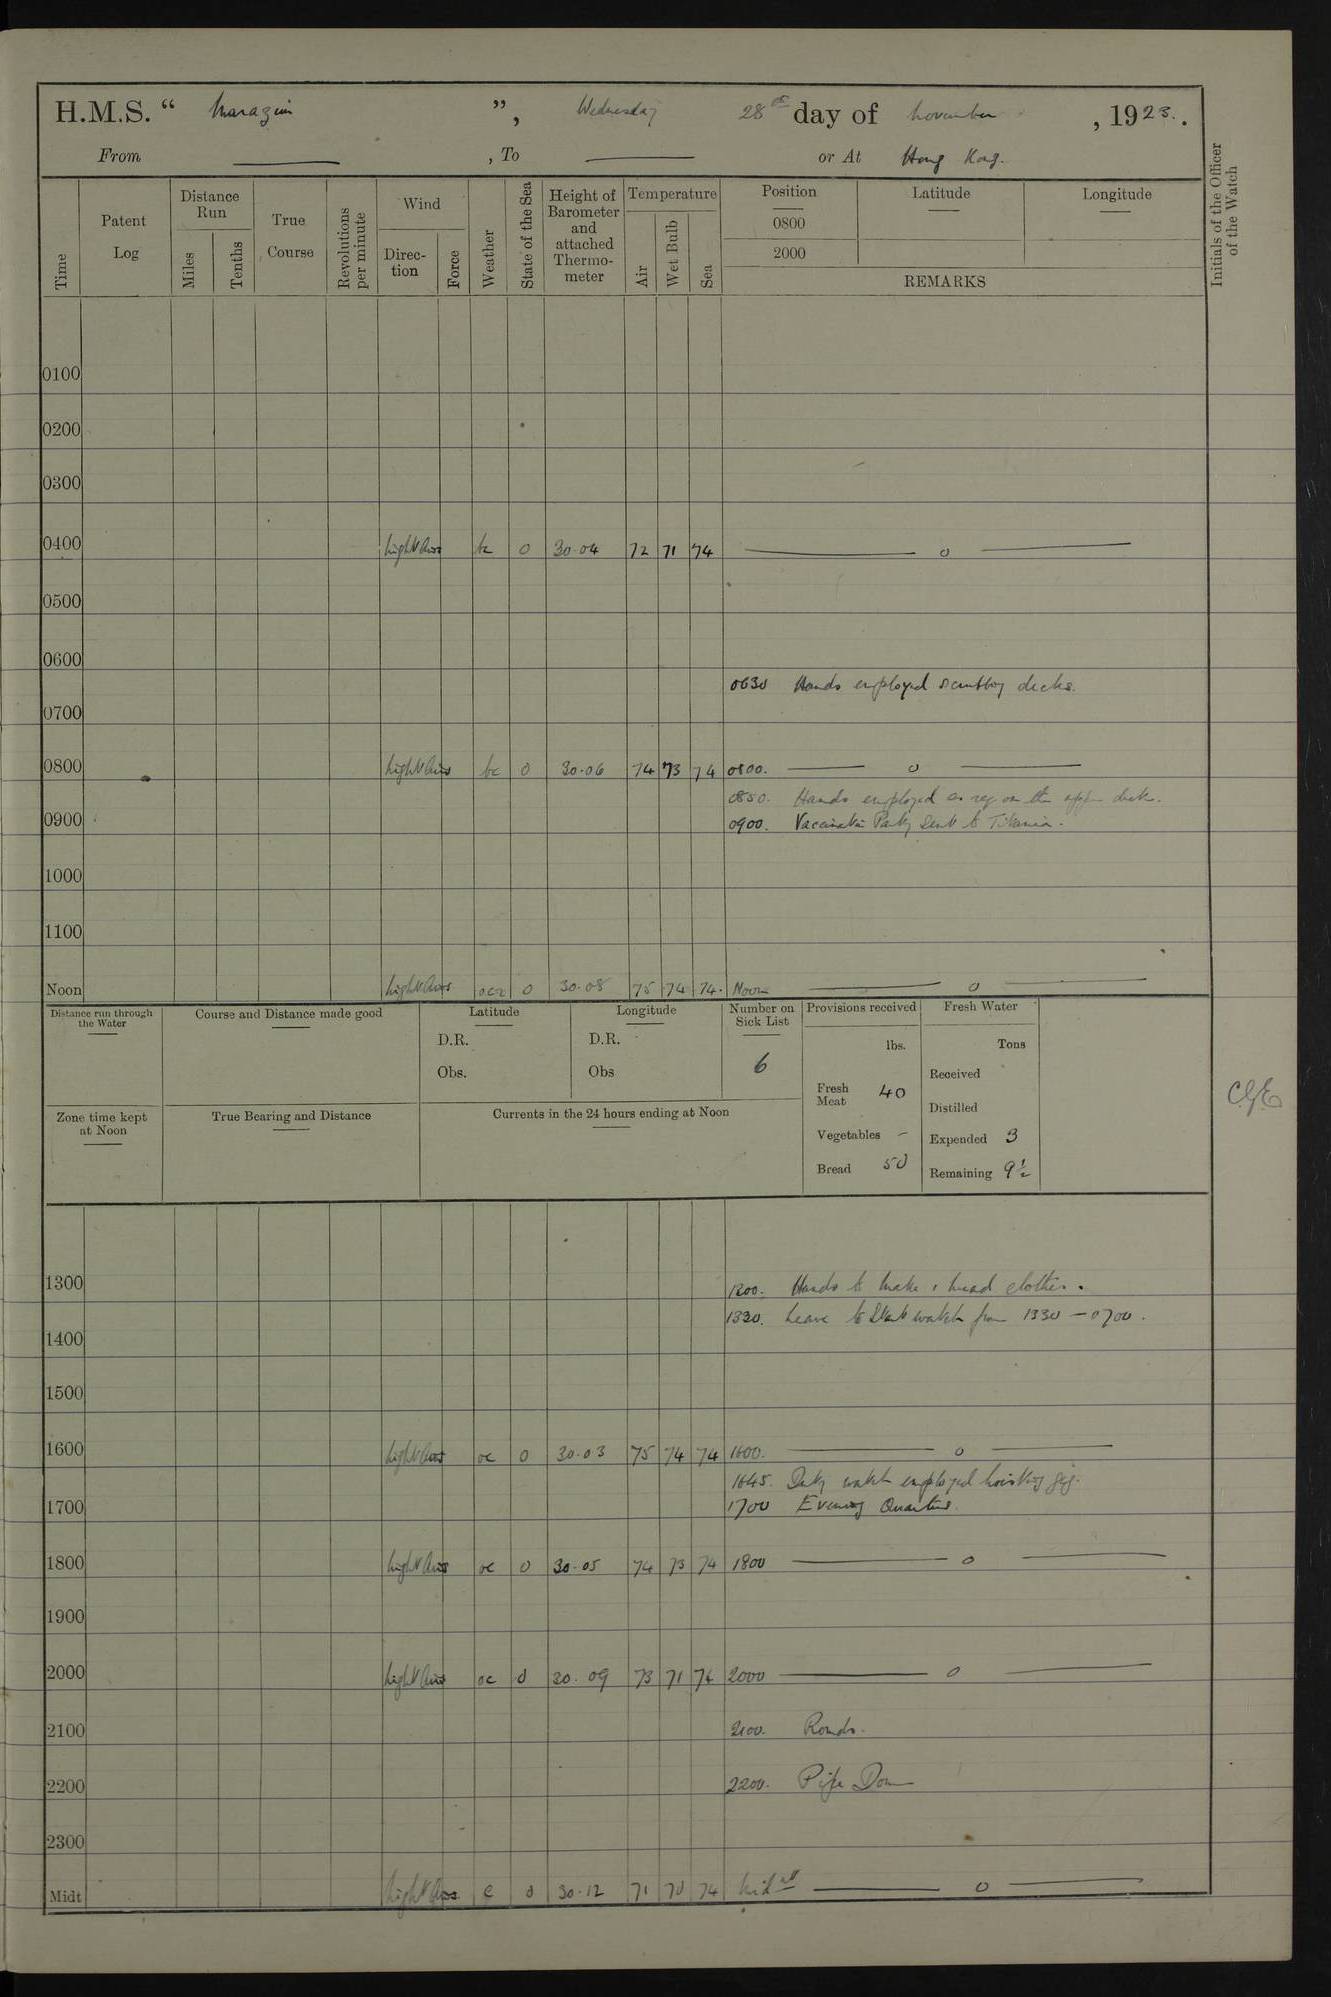 H.M.S. “ Marazion ”, Wednesday 28th day of November, 1923.
From —— , To —— or At Hong Kong.
Time
Patent Log
Distance Run
Miles
Tenths
True Course
Revolutions per minute
Wind
Direction
Force
Weather
State of the Sea
Height of Barometer and attached Thermometer
Temperature
Air
Wet Bulb
Sea
Position
0800
2000
Latitude
Longitude
REMARKS
Initials of the Officer of the Watch
0100
0200
0300
0400 Light Airs bc 0 30.04 72 71 74 —— o ——
0500
0600
0630 Hands employed scrubbing decks.
0700
0800 Light Airs bc 0 30.06 74 73 74 0800. —— o ——
0850. Hands employed as req on the upper deck.
0900 0900. Vaccination Party sent to Titania.
1000
1100
Noon Light Airs 0 30.08 75 74 74. Noon —— o ——
Distance run through the Water
Course and Distance made good
Latitude
D.R.
Obs.
Longitude
D.R.
Obs
Number on Sick List
6
Provisions received
lbs.
Fresh Meat 40
Vegetables –
Bread 50
Fresh Water
Tons
Received
Distilled
Expended 3
Remaining 9½
CGE
Zone time kept at Noon
True Bearing and Distance
Currents in the 24 hours ending at Noon
1300 1300. Hands to make & mend clothes.
1330. Leave to Stbd watch from 1330 — 0700.
1400
1500
1600 Light Airs oc 0 30.03 75 74 74 1600. —— o ——
1645. Duty watch employed hoisting gig.
1700 1700 Evening Quarters.
1800 Light Airs oc 0 30.05 74 73 74 1800 —— o ——
1900
2000 Light Airs oc 0 30.09 73 71 74 2000 —— o ——
2100 2100. Rounds.
2200 2200. Pipe Down
2300
Midt Light Airs c 0 30.12 71 70 74 Midnt —— o ——